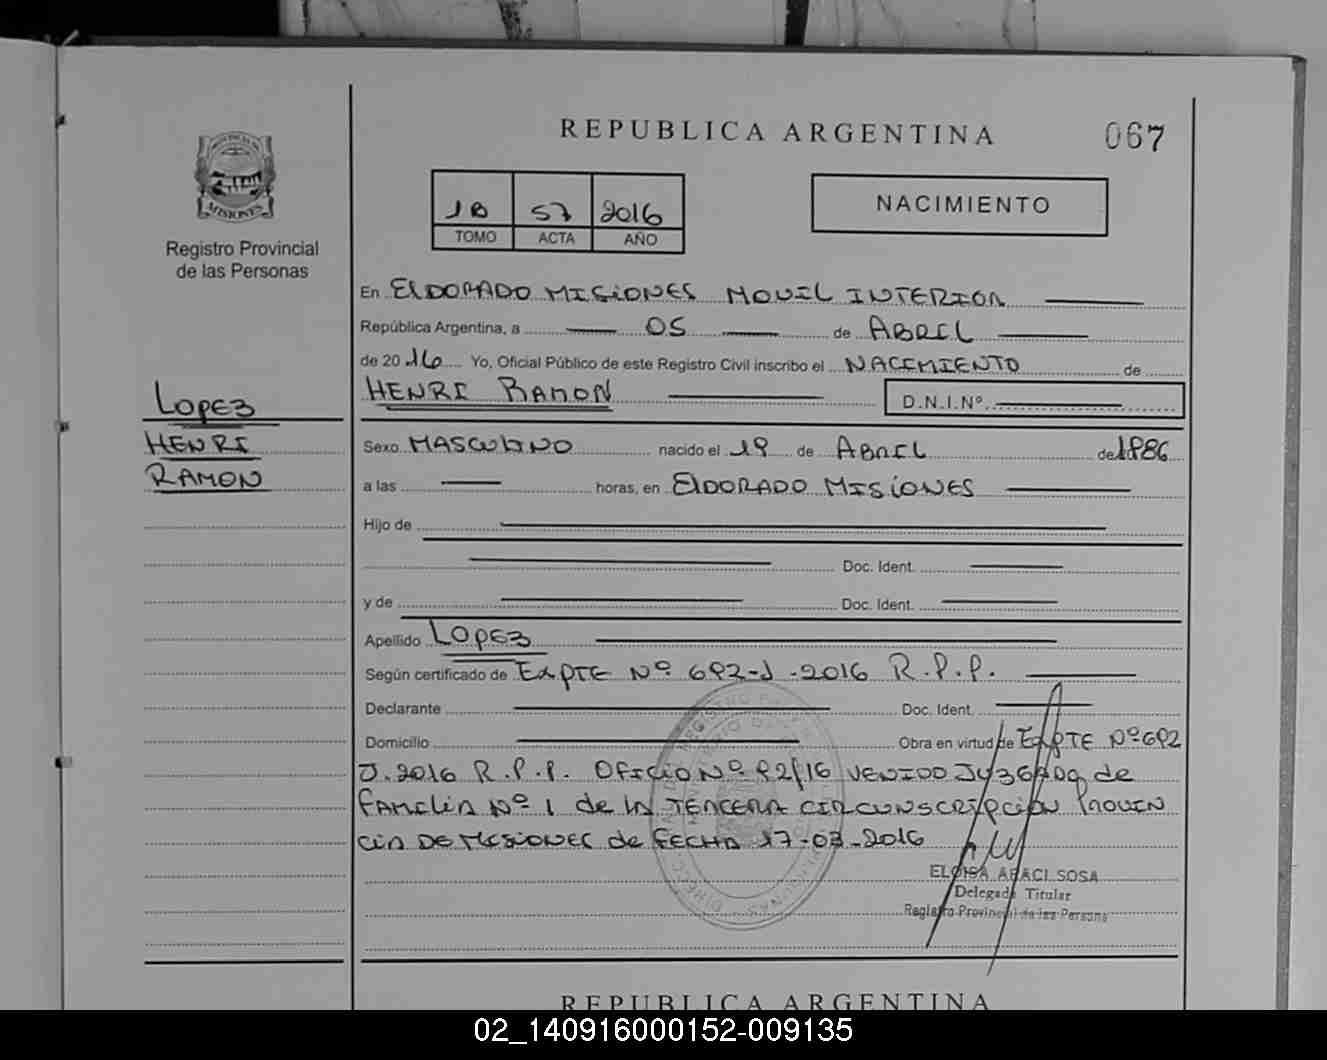 REPUBLICA ARGENTINA
067
PROVINCIA DE
MISIONES
Registro Provincial
de las Personas
1B 57 2016
TOMO ACTA AÑO
NACIMIENTO
En ELDORADO MISIONES MOVIL INTERIOR
República Argentina, a 05 de ABRIL
de 2016 Yo, Oficial Público de este Registro Civil inscribo el NACIMIENTO de
HENRI RAMON D.N.I.Nº
LOPEZ
HENRI
RAMON
Sexo MASCULINO nacido el 19 de ABRIL de 1986
a las horas, en ELDORADO MISIONES
Hijo de
Doc. Ident.
y de Doc. Ident.
Apellido LOPEZ
Según certificado de EXPTE Nº 692-J-2016 R.P.P.
Declarante Doc. Ident.
Domicilio Obra en virtud de EXPTE Nº 692
J.2016 R.P.P. OFICIO Nº 92/16 VENIDO JUZGADO de
FAMILIA Nº 1 de la TERCERA CIRCUNSCRIPCION PROVIN
CIA DE MISIONES de FECHA 17-03-2016
ELOISA ABACI SOSA
Delegada Titular
Registro Provincial de las Persona
REPUBLICA ARGENTINA
02_140916000152-009135